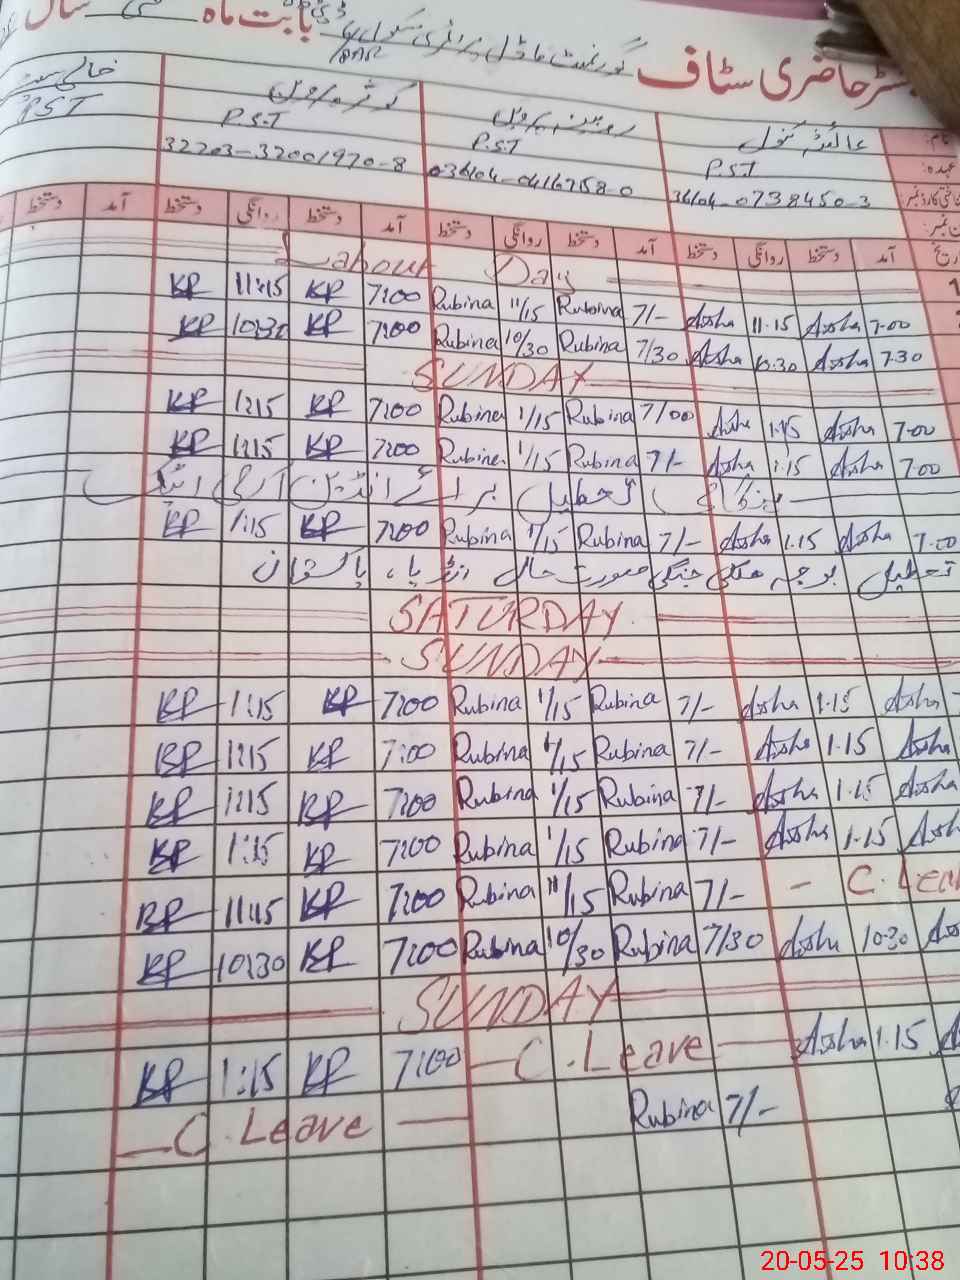 رجسٹر حاضری سٹاف گورنمنٹ ماڈل پرائمری سکول بابت ماہ مئی سال
نام: عائشہ کنول روبینہ پروین کوثر پروین خالی سیٹ
عہدہ: P.S.T P.S.T P.S.T P.S.T
شناختی کارڈ نمبر: 36104-0738450-3 036104-0416758-0 32203-32001970-8
تاریخ آمد دستخط روانگی دستخط آمد دستخط روانگی دستخط آمد دستخط روانگی دستخط آمد دستخط
Labour Day
KP 11:15 KP 7:00 Rubina 11/15 Rubina 7/- Aisha 11.15 Aisha 7.00
KP 10:30 KP 7:00 Rubina 10/30 Rubina 7/30 Aisha 10.30 Aisha 7.30
SUNDAY
KP 1:15 KP 7:00 Rubina 1/15 Rubina 7/00 Aisha 1.15 Aisha 7.00
KP 1:15 KP 7:00 Rubina 1/15 Rubina 7/- Aisha 1.15 Aisha 7.00
ہنگامی تعطیل برائے انڈین آرمی اٹیک
KP 1:15 KP 7:00 Rubina 1/15 Rubina 7/- Aisha 1.15 Aisha 7.00
تعطیل بوجہ ملکی جنگی صورت حال انڈیا، پاکستان
SATURDAY
SUNDAY
KP 1:15 KP 7:00 Rubina 1/15 Rubina 7/- Aisha 1.15 Aisha
KP 1:15 KP 7:00 Rubina 1/15 Rubina 7/- Aisha 1.15 Aisha
KP 1:15 KP 7:00 Rubina 1/15 Rubina 7/- Aisha 1.15 Aisha
KP 1:15 KP 7:00 Rubina 1/15 Rubina 7/- Aisha 1.15
KP 11:15 KP 7:00 Rubina 11/15 Rubina 7/- - C. Lea
KP 10:30 KP 7:00 Rubina 10/30 Rubina 7/30 Aisha 10.30
SUNDAY
KP 1:15 KP 7:00 C. Leave Aisha 1.15
C. Leave Rubina 7/-
20-05-25 10:38